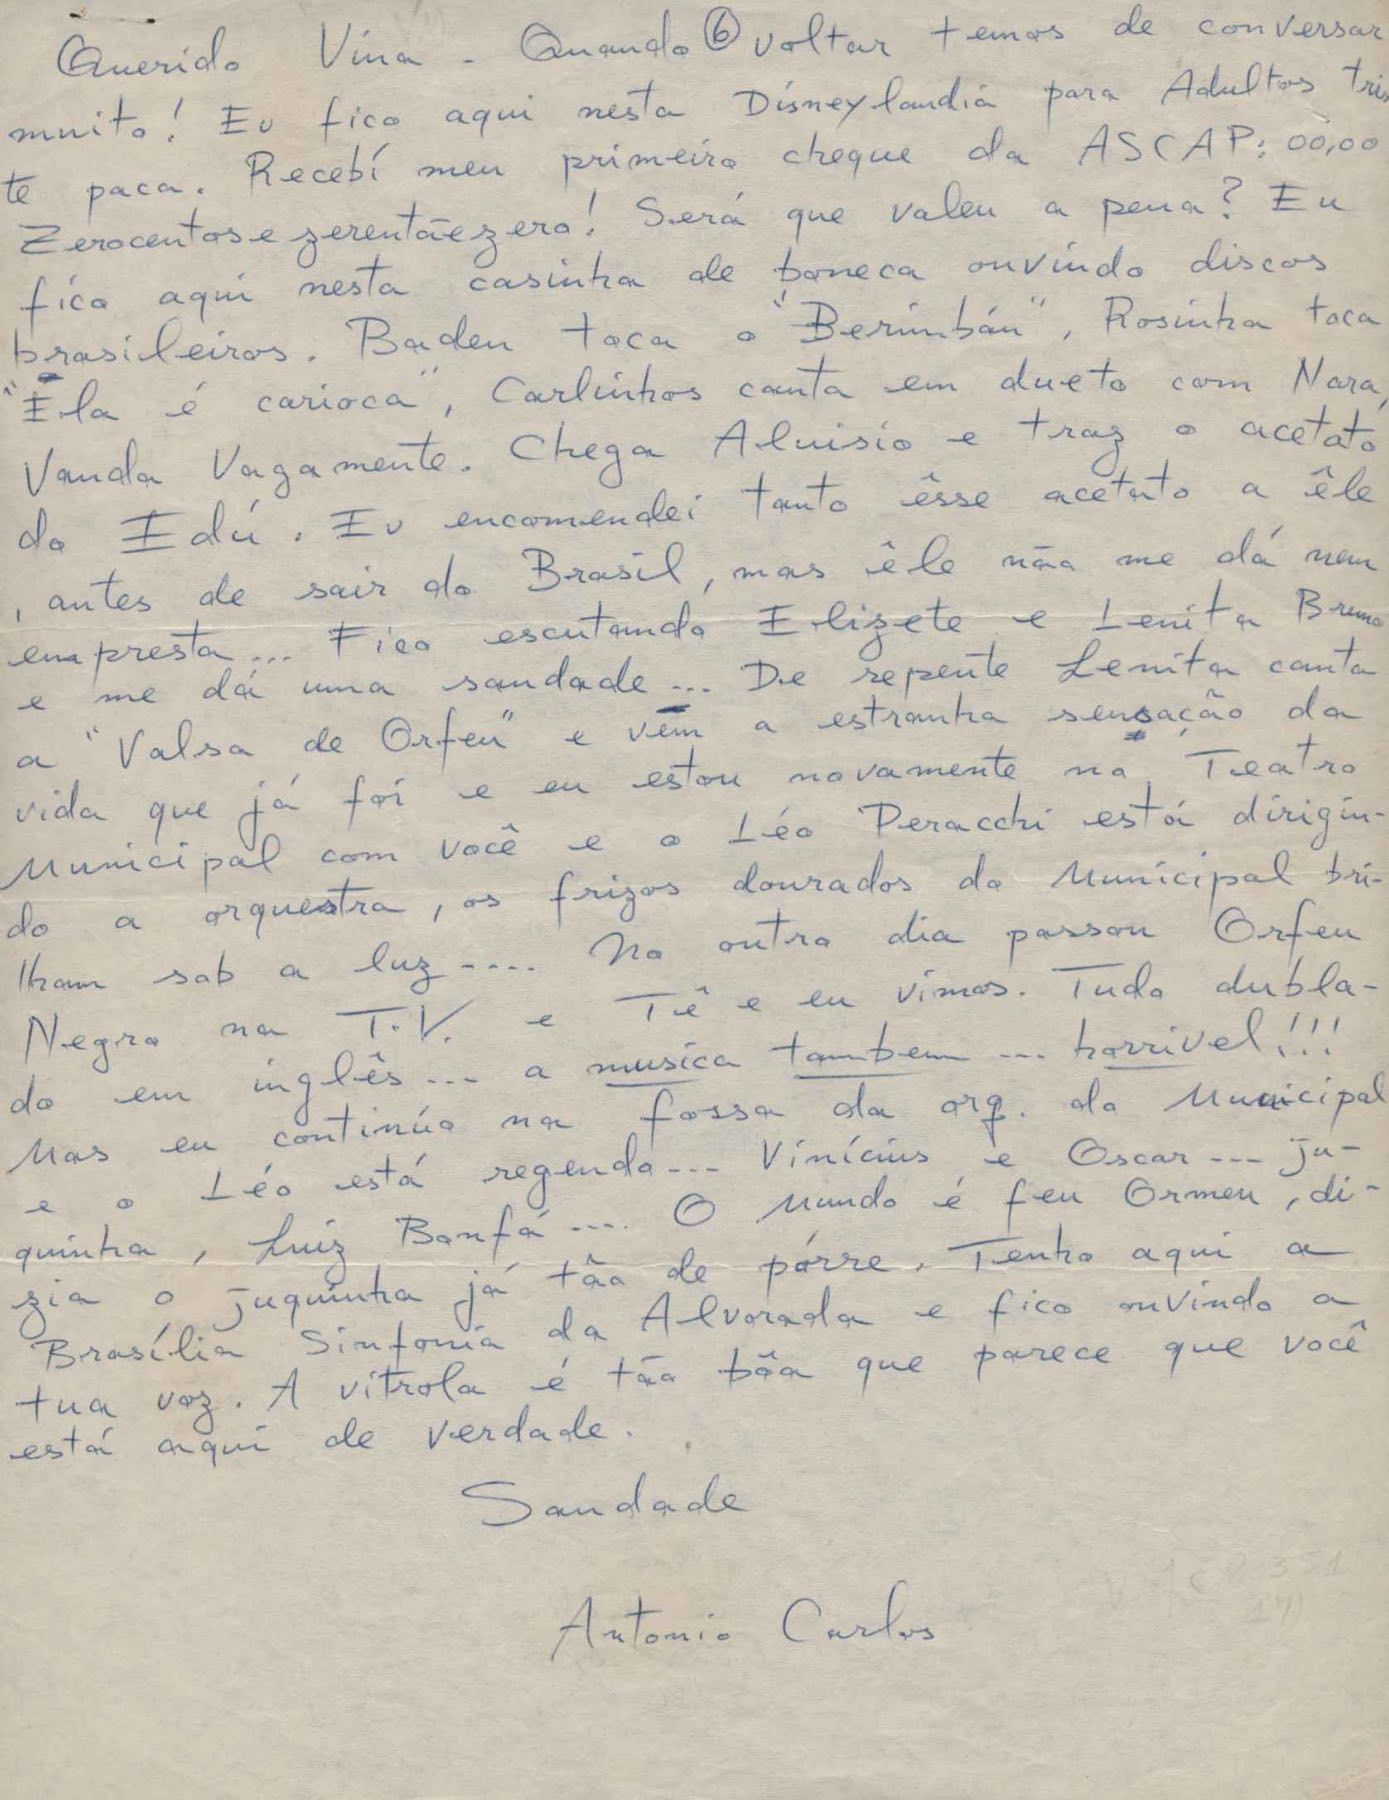 Querido Vina - Quando ⑥ voltar temos de conversar
muito! Eu fico aqui nesta Disneylandia para Adultos tris
te paca. Recebí meu primeiro cheque da ASCAP: 00,00
Zerocentos e zerentãezero! Será que valeu a pena? Eu
fico aqui nesta casinha de boneca ouvindo discos
brasileiros. Baden toca o "Berimbáu", Rosinha toca
"Ela é carioca", Carlinhos canta em dueto com Nara,
Vanda Vagamente. Chega Aluisio e traz o acetato
do Edú. Eu encomendei tanto êsse acetato a êle
, antes de sair do Brasil, mas êle não me dá nem
empresta... Fico escutando Elizete e Lenita Bruno
e me dá uma saudade... De repente Lenita canta
a "Valsa de Orfeu" e vem a estranha sensação da
vida que já foi e eu estou novamente no Teatro
Municipal com você e o Léo Peracchi está dirigin-
do a orquestra, os frizos dourados do Municipal bri-
lham sob a luz .... No outro dia passou Orfeu
Negro na T.V. e Tê e eu vimos. Tudo dubla-
do em inglês... a musica tambem ... horrivel!!!
Mas eu continúo na fossa da orq. do Municipal
e o Léo está regendo... Vinícius e Oscar ... ju-
quinha, Luiz Bonfá .... O mundo é feu Ormeu, di-
zia o juquinha já tão de pórre. Tenho aqui a
Brasília Sinfonia da Alvorada e fico ouvindo a
tua voz. A vitrola é tão bôa que parece que você
está aqui de verdade.
Saudade
Antonio Carlos